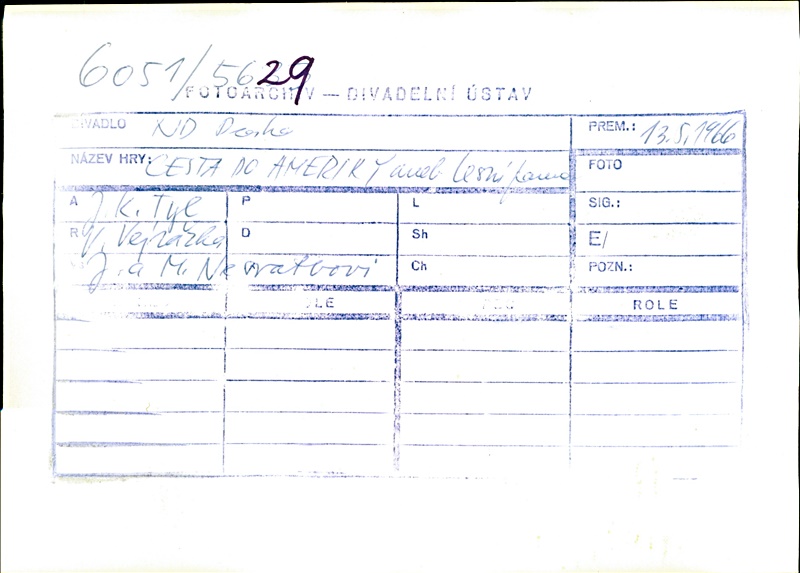 6051/5629
FOTOARCHIV — DIVADELNÍ ÚSTAV
DIVADLO ND Praha PREM.: 13.5.1966
NÁZEV HRY: CESTA DO AMERIKY aneb Lesní panna FOTO
A J. K. Tyl P L SIG.:
R V. Vejražka D Sh E/
J. a M. Nesvatbovi Ch POZN.:
ROLE ROLE